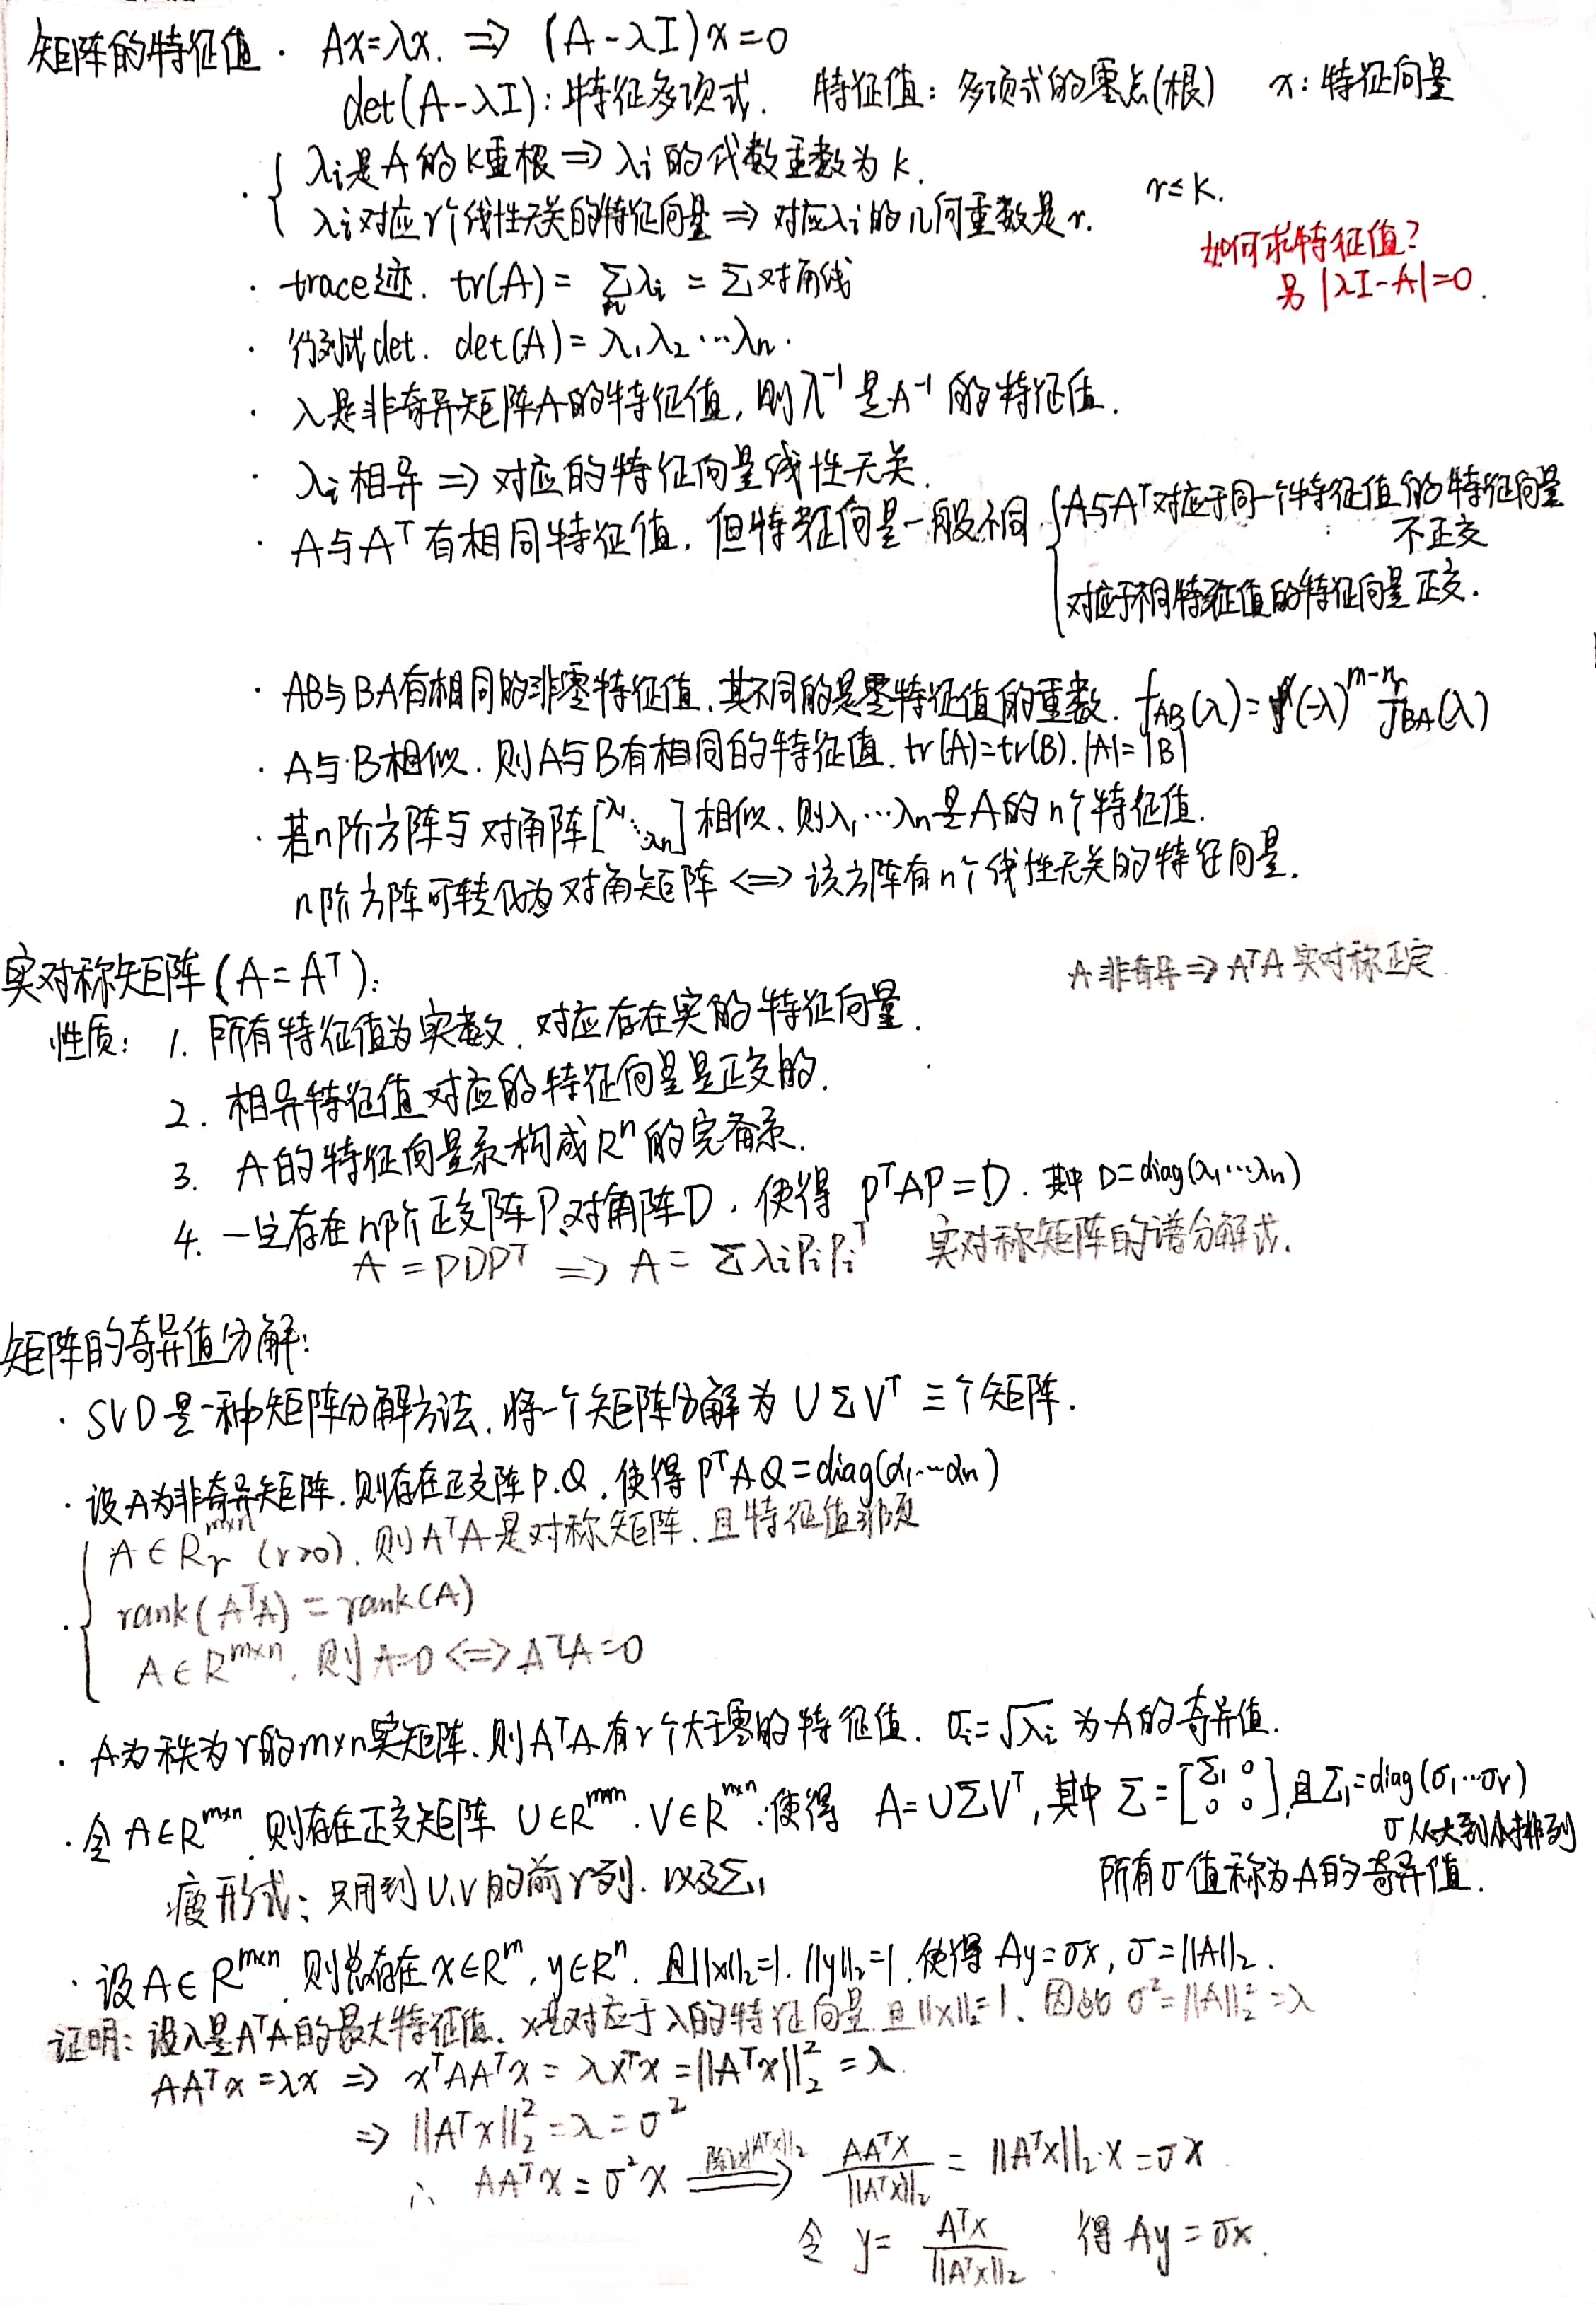 矩阵的特征值 · Ax=λx. ⇒ (A-λI)x=0
det(A-λI): 特征多项式. 特征值: 多项式的零点(根) x: 特征向量
· { λi是A的K重根 ⇒ λi的代数重数为k.
λi对应r个线性无关的特征向量 ⇒ 对应λi的几何重数是r. r≤K.
如何求特征值?
另 |λI-A|=0.
· trace迹. tr(A) = Σλi = Σ对角线
· 行列式det. det(A) = λ₁λ₂⋯λn.
· λ是非奇异矩阵A的特征值, 则λ⁻¹是A⁻¹的特征值.
· λi相异 ⇒ 对应的特征向量线性无关.
· A与Aᵀ有相同特征值, 但特征向量一般不同 { A与Aᵀ对应于同一个特征值的特征向量
不正交
对应于不同特征值的特征向量正交.
· AB与BA有相同的非零特征值, 其不同的是零特征值的重数. f_AB(λ) = (-λ)^(m-n) f_BA(λ)
· A与B相似. 则A与B有相同的特征值. tr(A)=tr(B). |A|=|B|
· 若n阶方阵与对角阵[λ₁⋱λn]相似, 则λ₁⋯λn是A的n个特征值.
n阶方阵可转化为对角矩阵 ⇔ 该方阵有n个线性无关的特征向量.
实对称矩阵 (A=Aᵀ):
A非奇异 ⇒ AᵀA 实对称正定
性质: 1. 所有特征值为实数. 对应存在实的特征向量.
2. 相异特征值对应的特征向量是正交的.
3. A的特征向量系构成Rⁿ的完备系.
4. 一定存在n阶正交阵P,对角阵D, 使得 PᵀAP=D. 其中 D=diag(λ₁⋯λn)
A = PDPᵀ ⇒ A = ΣλiPiPiᵀ 实对称矩阵的谱分解式.
矩阵的奇异值分解:
· SVD是一种矩阵分解方法, 将一个矩阵分解为 UΣVᵀ 三个矩阵.
· 设A为非奇异矩阵. 则存在正交阵P.Q. 使得 PᵀAQ=diag(α₁⋯αn)
· { A∈Rᵣ^(m×n) (r>0). 则AᵀA是对称矩阵. 且特征值非负
rank(AᵀA) = rank(A)
A∈R^(m×n), 则 A=0 ⇔ AᵀA=0
· A为秩为r的m×n实矩阵. 则AᵀA有r个大于零的特征值. σi=√λi 为A的奇异值.
· 令A∈R^(m×n), 则存在正交矩阵 U∈R^(m×m). V∈R^(n×n). 使得 A=UΣVᵀ, 其中 Σ=[Σ₁ 0 0 0], 且Σ₁=diag(σ₁⋯σr)
σ从大到小排列
瘦形式: 只用到U.V的前r列. 以及Σ₁, 所有σ值称为A的奇异值.
· 设A∈R^(m×n). 则总存在 x∈R^m, y∈Rⁿ. 且||x||₂=1. ||y||₂=1. 使得 Ay=σx, σ=||A||₂.
证明: 设λ是AᵀA的最大特征值. x是对应于λ的特征向量 且||x||₂=1. 因此 σ²=||A||₂²=λ
AAᵀx=λx ⇒ xᵀAAᵀx = λxᵀx = ||Aᵀx||₂² = λ.
⇒ ||Aᵀx||₂² = λ = σ²
∴ AAᵀx = σ²x ⇒(除以||Aᵀx||₂) AAᵀx/||Aᵀx||₂ = ||Aᵀx||₂·x = σx
令 y = Aᵀx/||Aᵀx||₂. 得 Ay = σx.